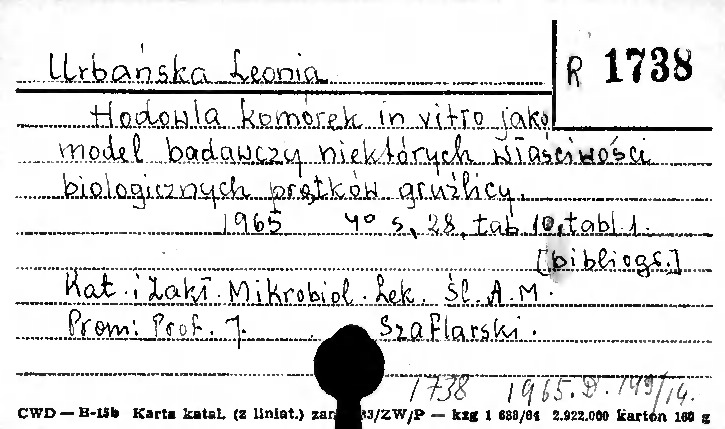 Urbańska Leonia
R 1738
Hodowla komórek in vitro jako
model badawczy niektórych właściwości
biologicznych prątków gruźlicy.
1965 4° s, 28, tab 10, tabl 1.
[bibliogr.]
Kat. i Zakł. Mikrobiol. Lek. Śl. A. M.
Prom: Prof. J. Szaflarski.
1738 1965. D. 149/14.
CWD — H-15b Karta katal. (z liniat.) zam. 33/ZW/P — kzg 1 688/64 2.922.000 karton 160 g